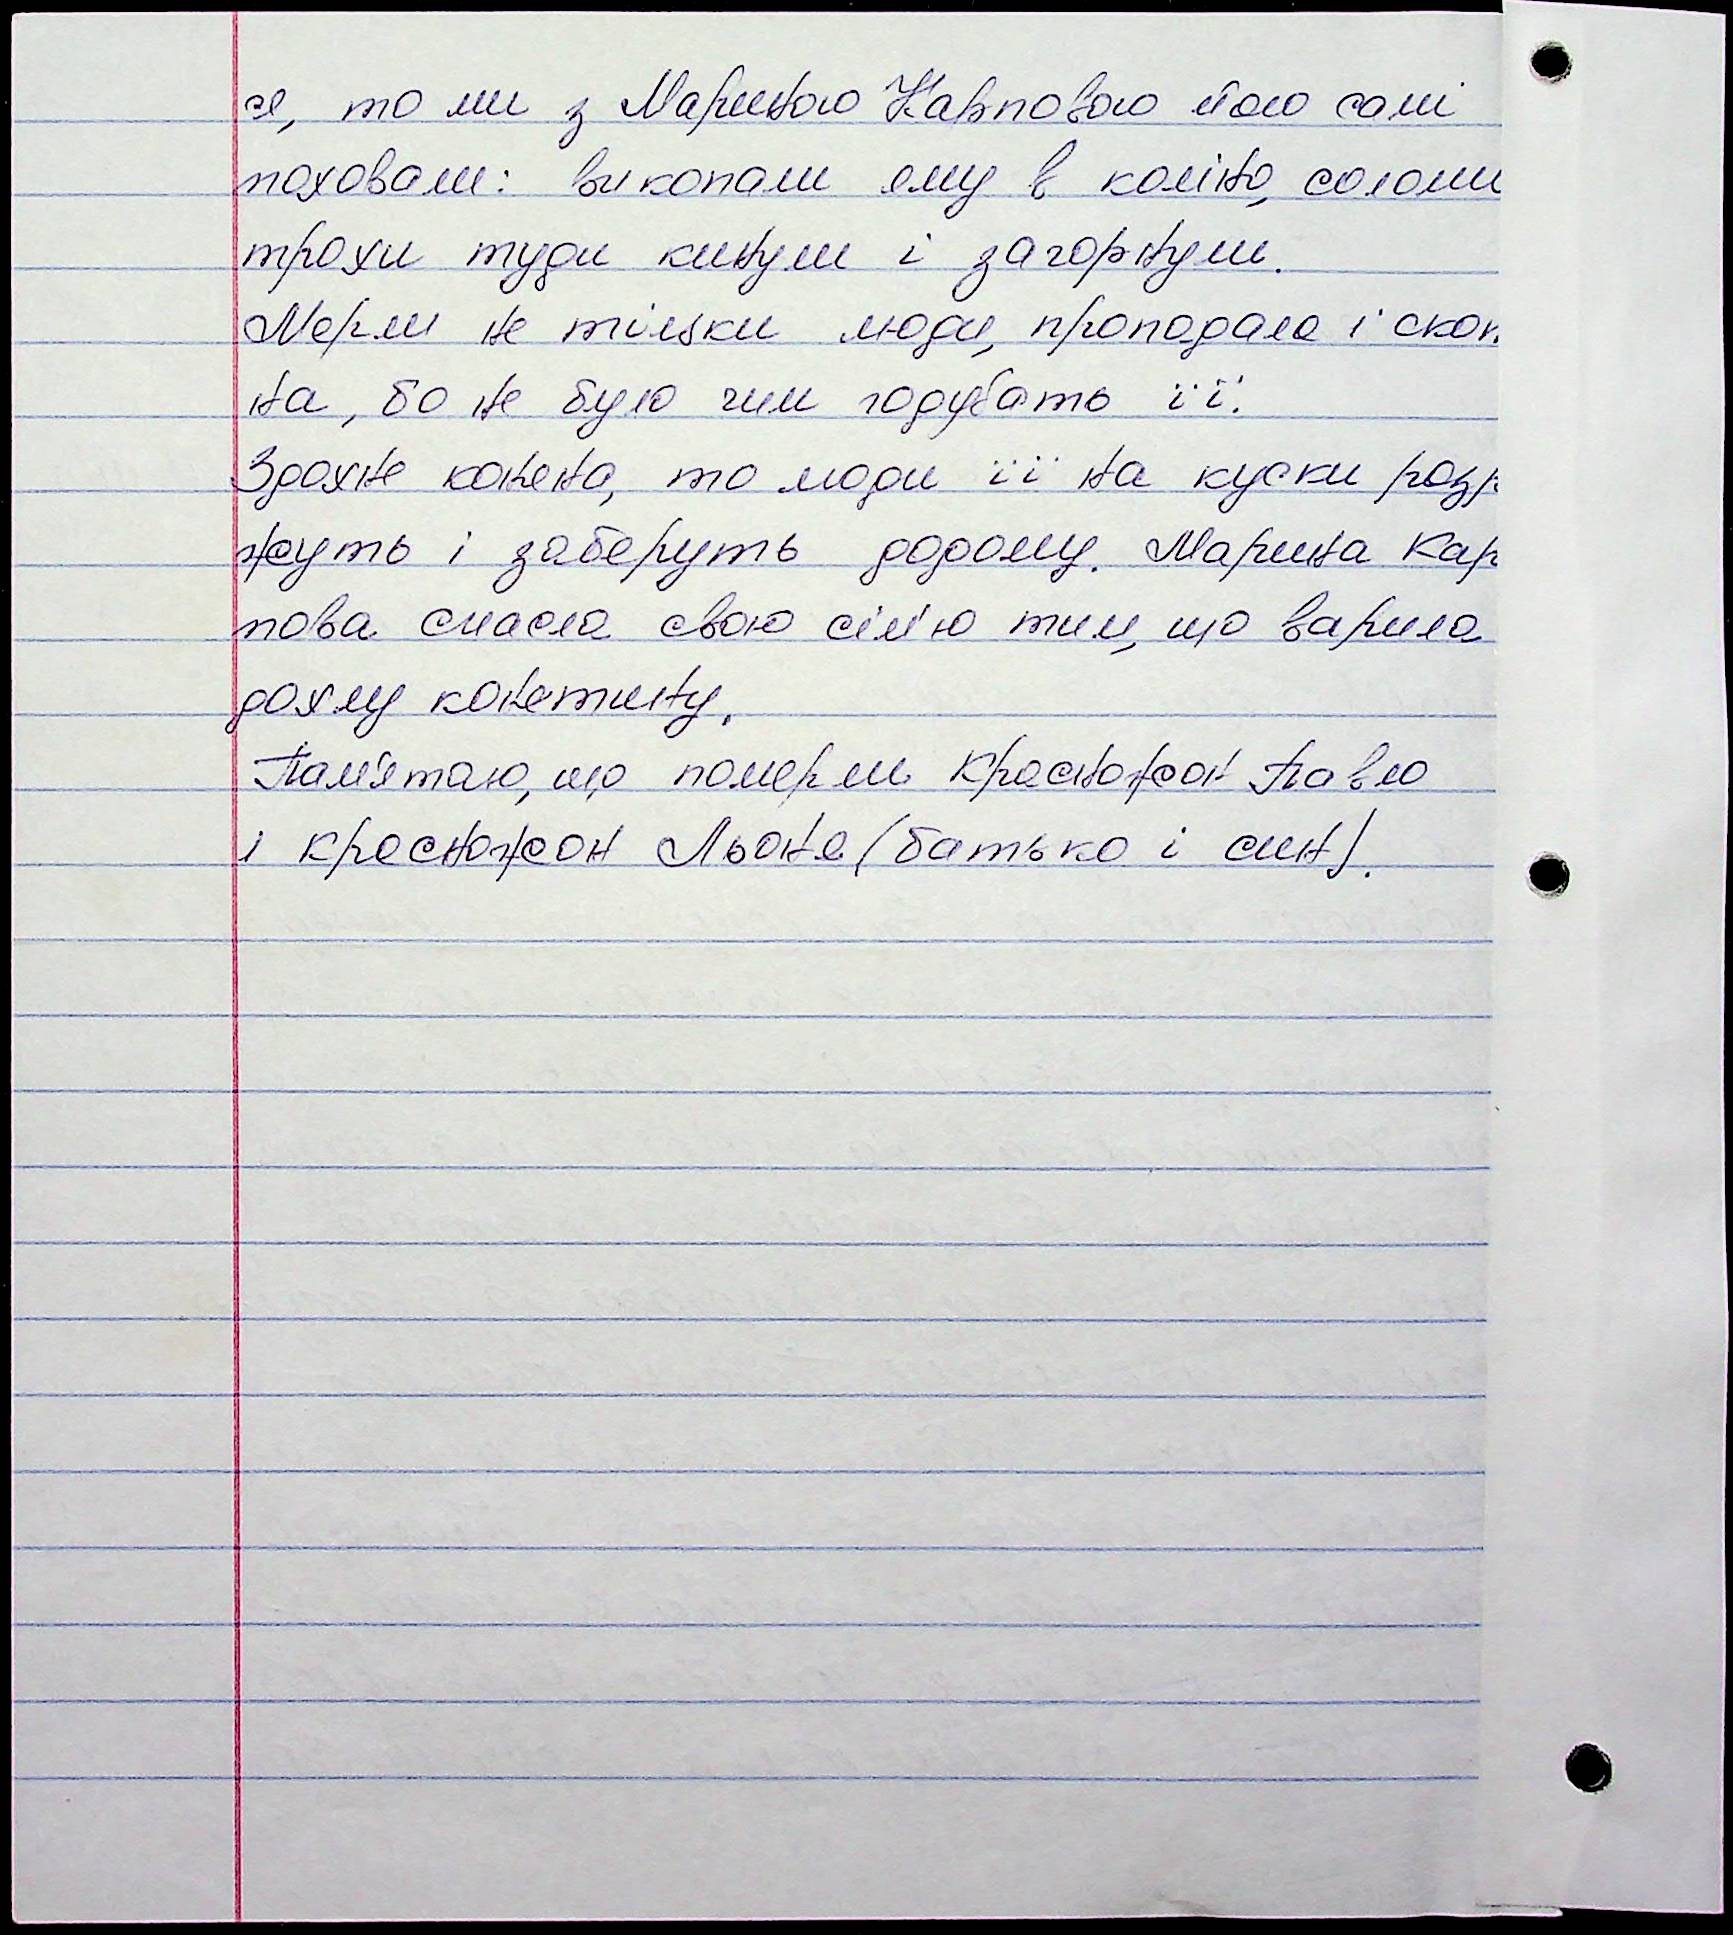 ся, то ми з Мариною Карповою його самі
поховали: викопали яму в коліно, соломи
трохи туди кинули і загорнули.
Мерли не тільки люди, пропадала і скоти
на, бо не було чим годувать її.
Здохне конена, то люди її на куски розрі
жуть і заберуть додому. Марина Кар
пова спасла свою сім'ю тим, що варила
дохлу конетину.
Пам'ятаю, що померли Красножон Павло
і Красножон Льоня (батько і син).